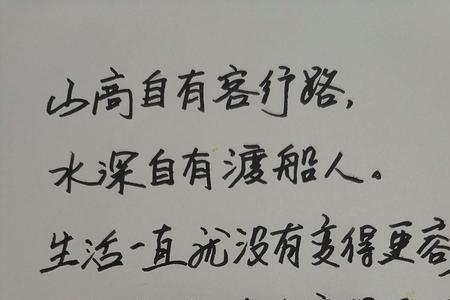 山高自有客行路，
水深自有渡船人。
生活一直就没有变得更容